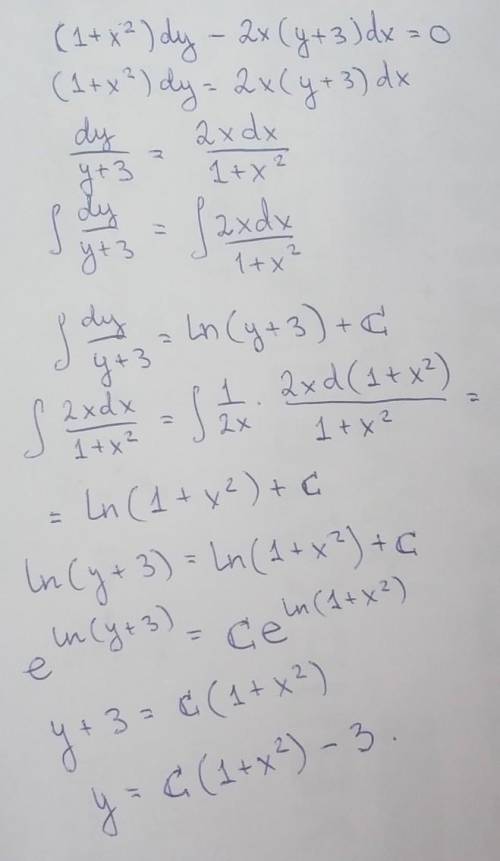 (1+x²)dy - 2x(y+3)dx = 0
(1+x²)dy = 2x(y+3)dx
dy/(y+3) = 2xdx/(1+x²)
∫ dy/(y+3) = ∫ 2xdx/(1+x²)
∫ dy/(y+3) = ln(y+3) + C
∫ 2xdx/(1+x²) = ∫ 1/2x · 2xd(1+x²)/(1+x²) =
= ln(1+x²) + C
ln(y+3) = ln(1+x²) + C
e^(ln(y+3)) = Ce^(ln(1+x²))
y+3 = C(1+x²)
y = C(1+x²) - 3.